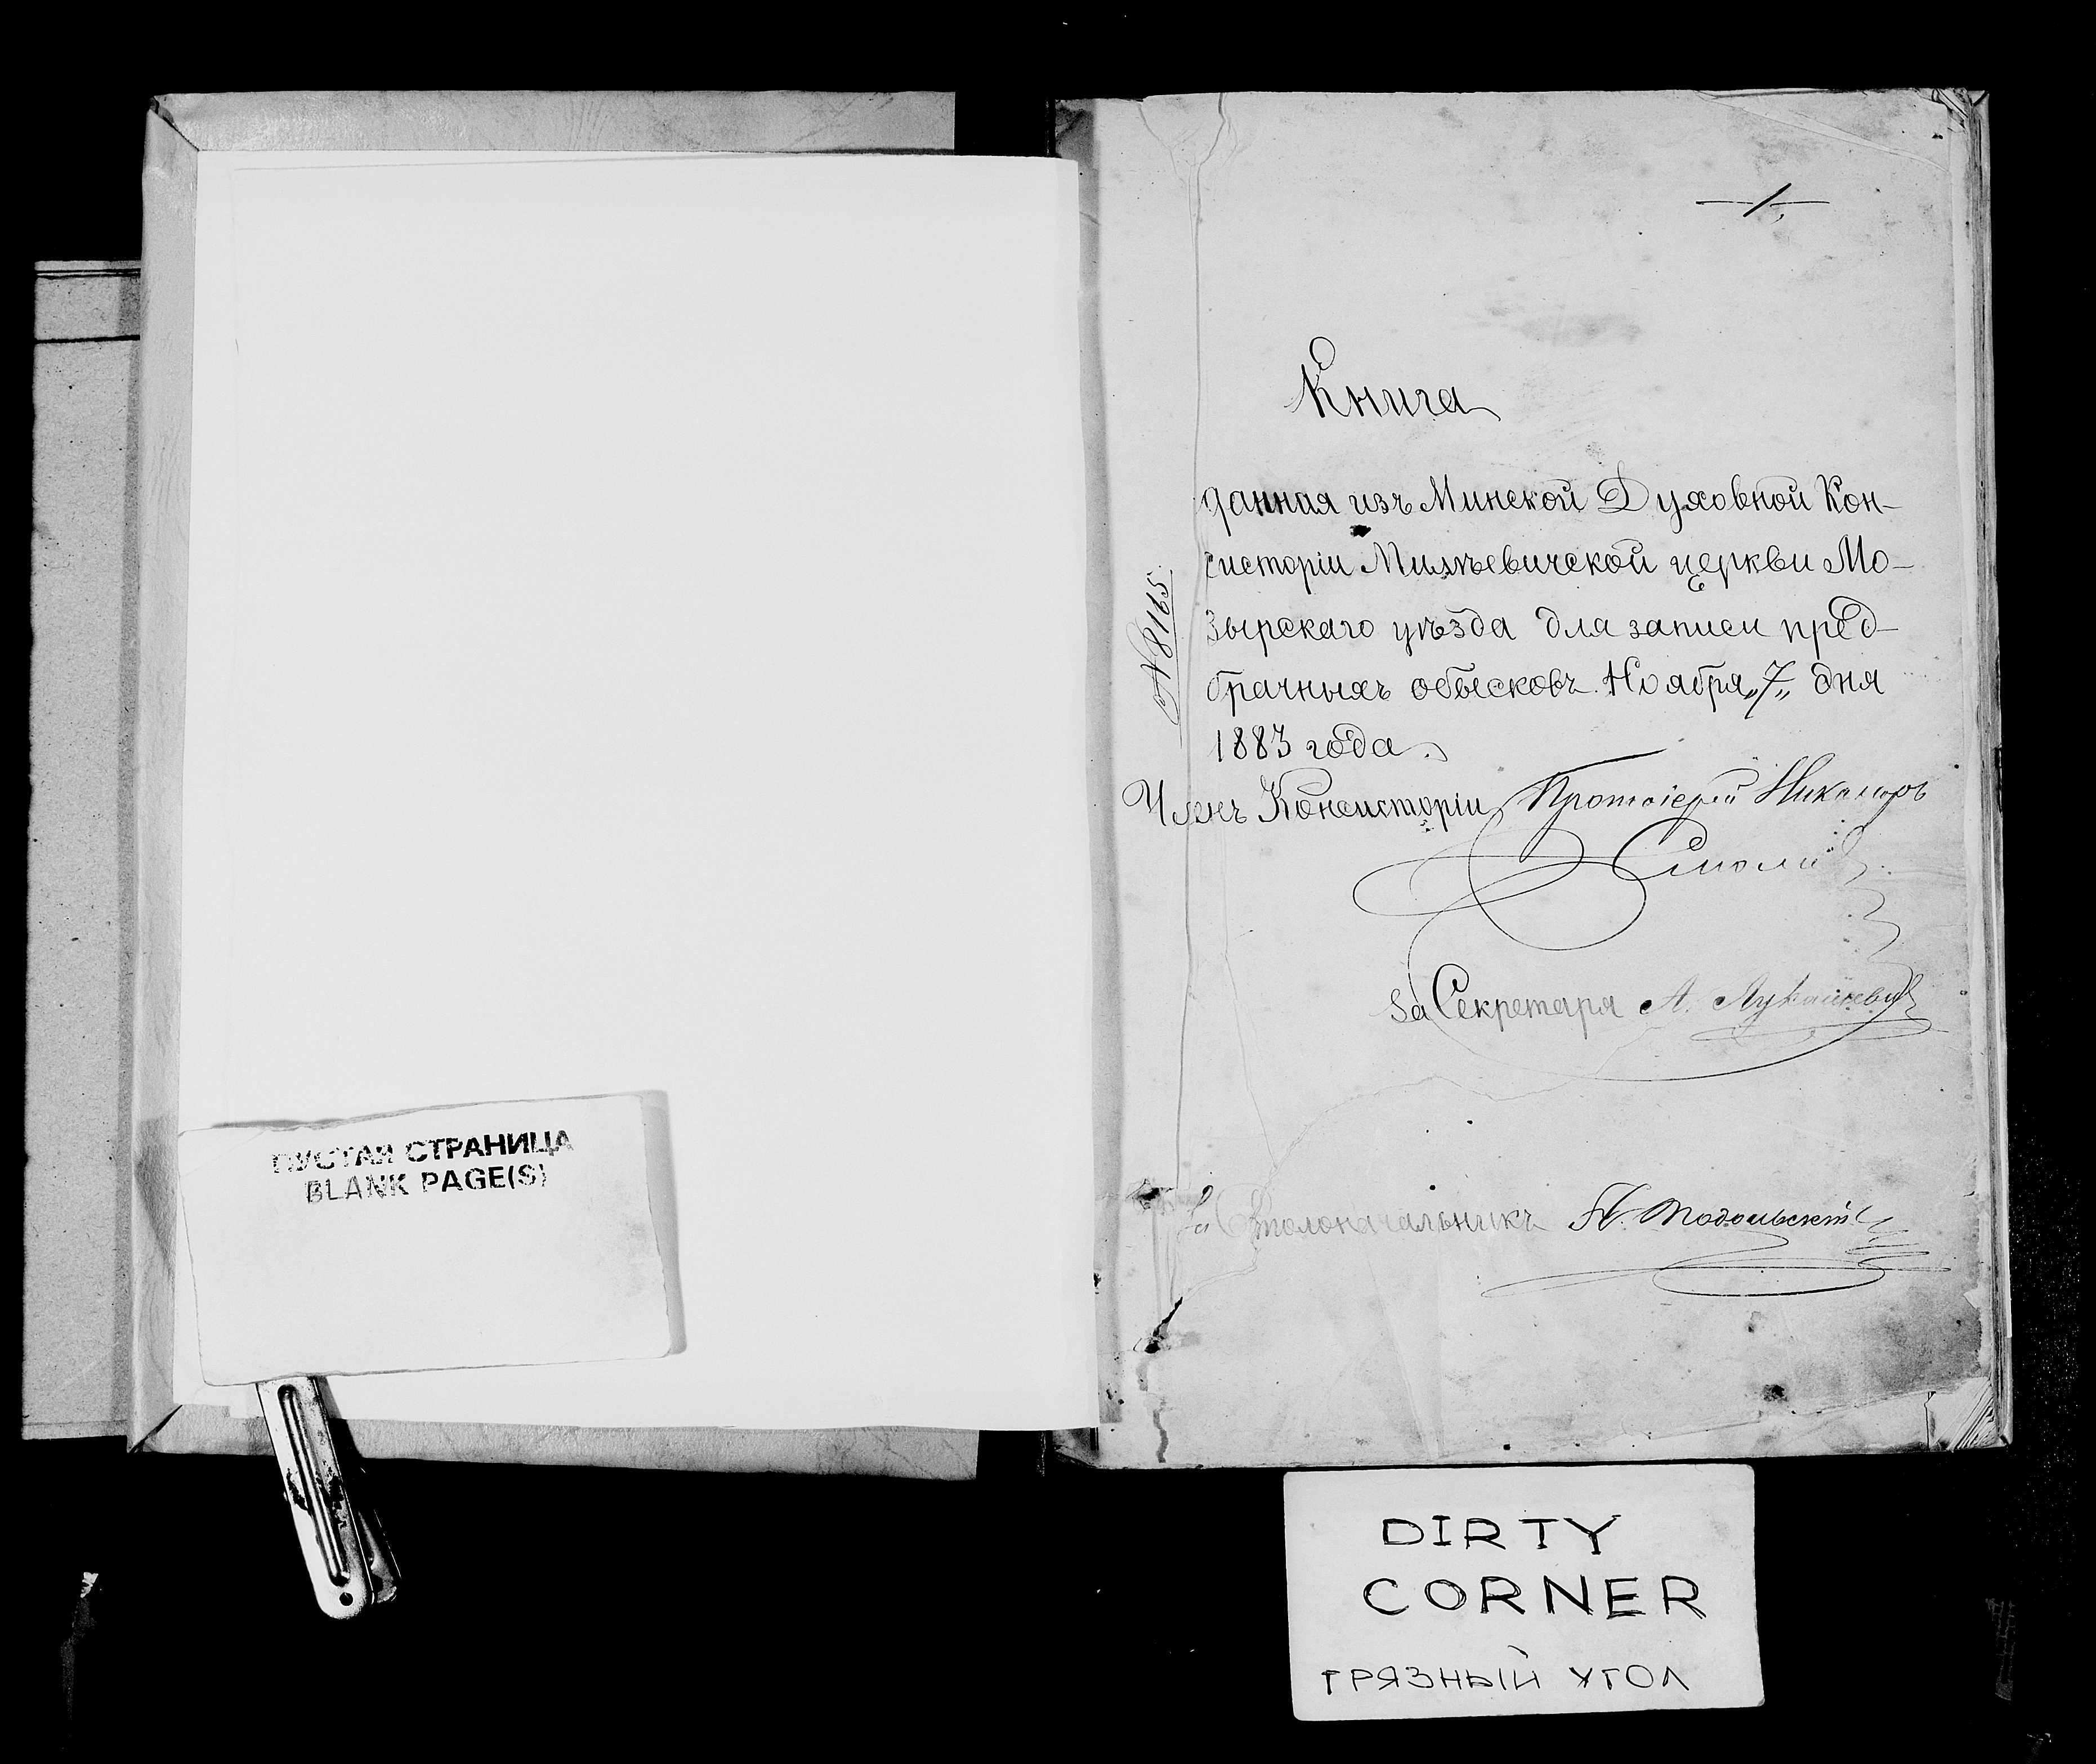 ПУСТАЯ СТРАНИЦА
BLANK PAGE(S)
1
Книга
данная изъ Минской Духовной Кон-
систоріи Милѣевичской церкви Мо-
зырскаго уѣзда для записи пред-
брачныхъ обысковъ. Ноября „7„ дня
1883 года.
№ 8165
Членъ Консисторіи Протоіерей Никаноръ
за Секретаря А.
Столоначальникъ
DIRTY
CORNER
ГРЯЗНЫЙ УГОЛ